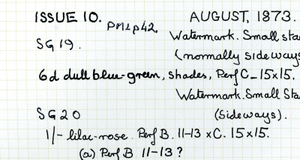 ISSUE 10. AUGUST, 1873.
PM2p42
Watermark. Small sta
SG 19. (normally sideways
6d dull blue-green, shades, Perf C-15x15.
Watermark. Small Sta
SG20 (sideways).
1/- lilac-rose. Perf B. 11-13 x C. 15x15.
(a) Perf B. 11-13?